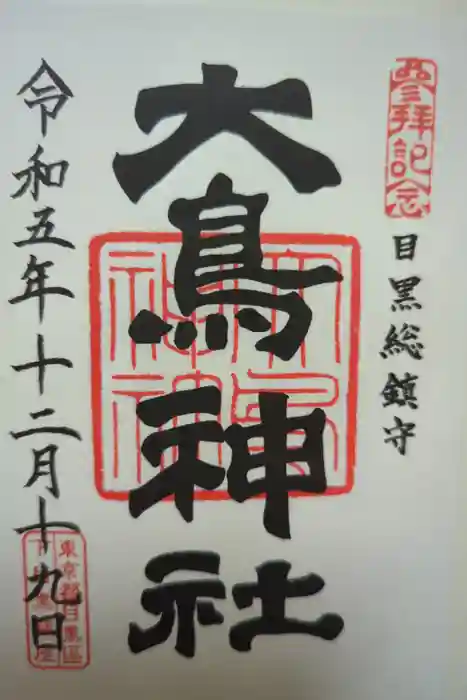 參拝記念
目黒総鎮守
大鳥神社
令和五年十二月十九日
東京都目黒区